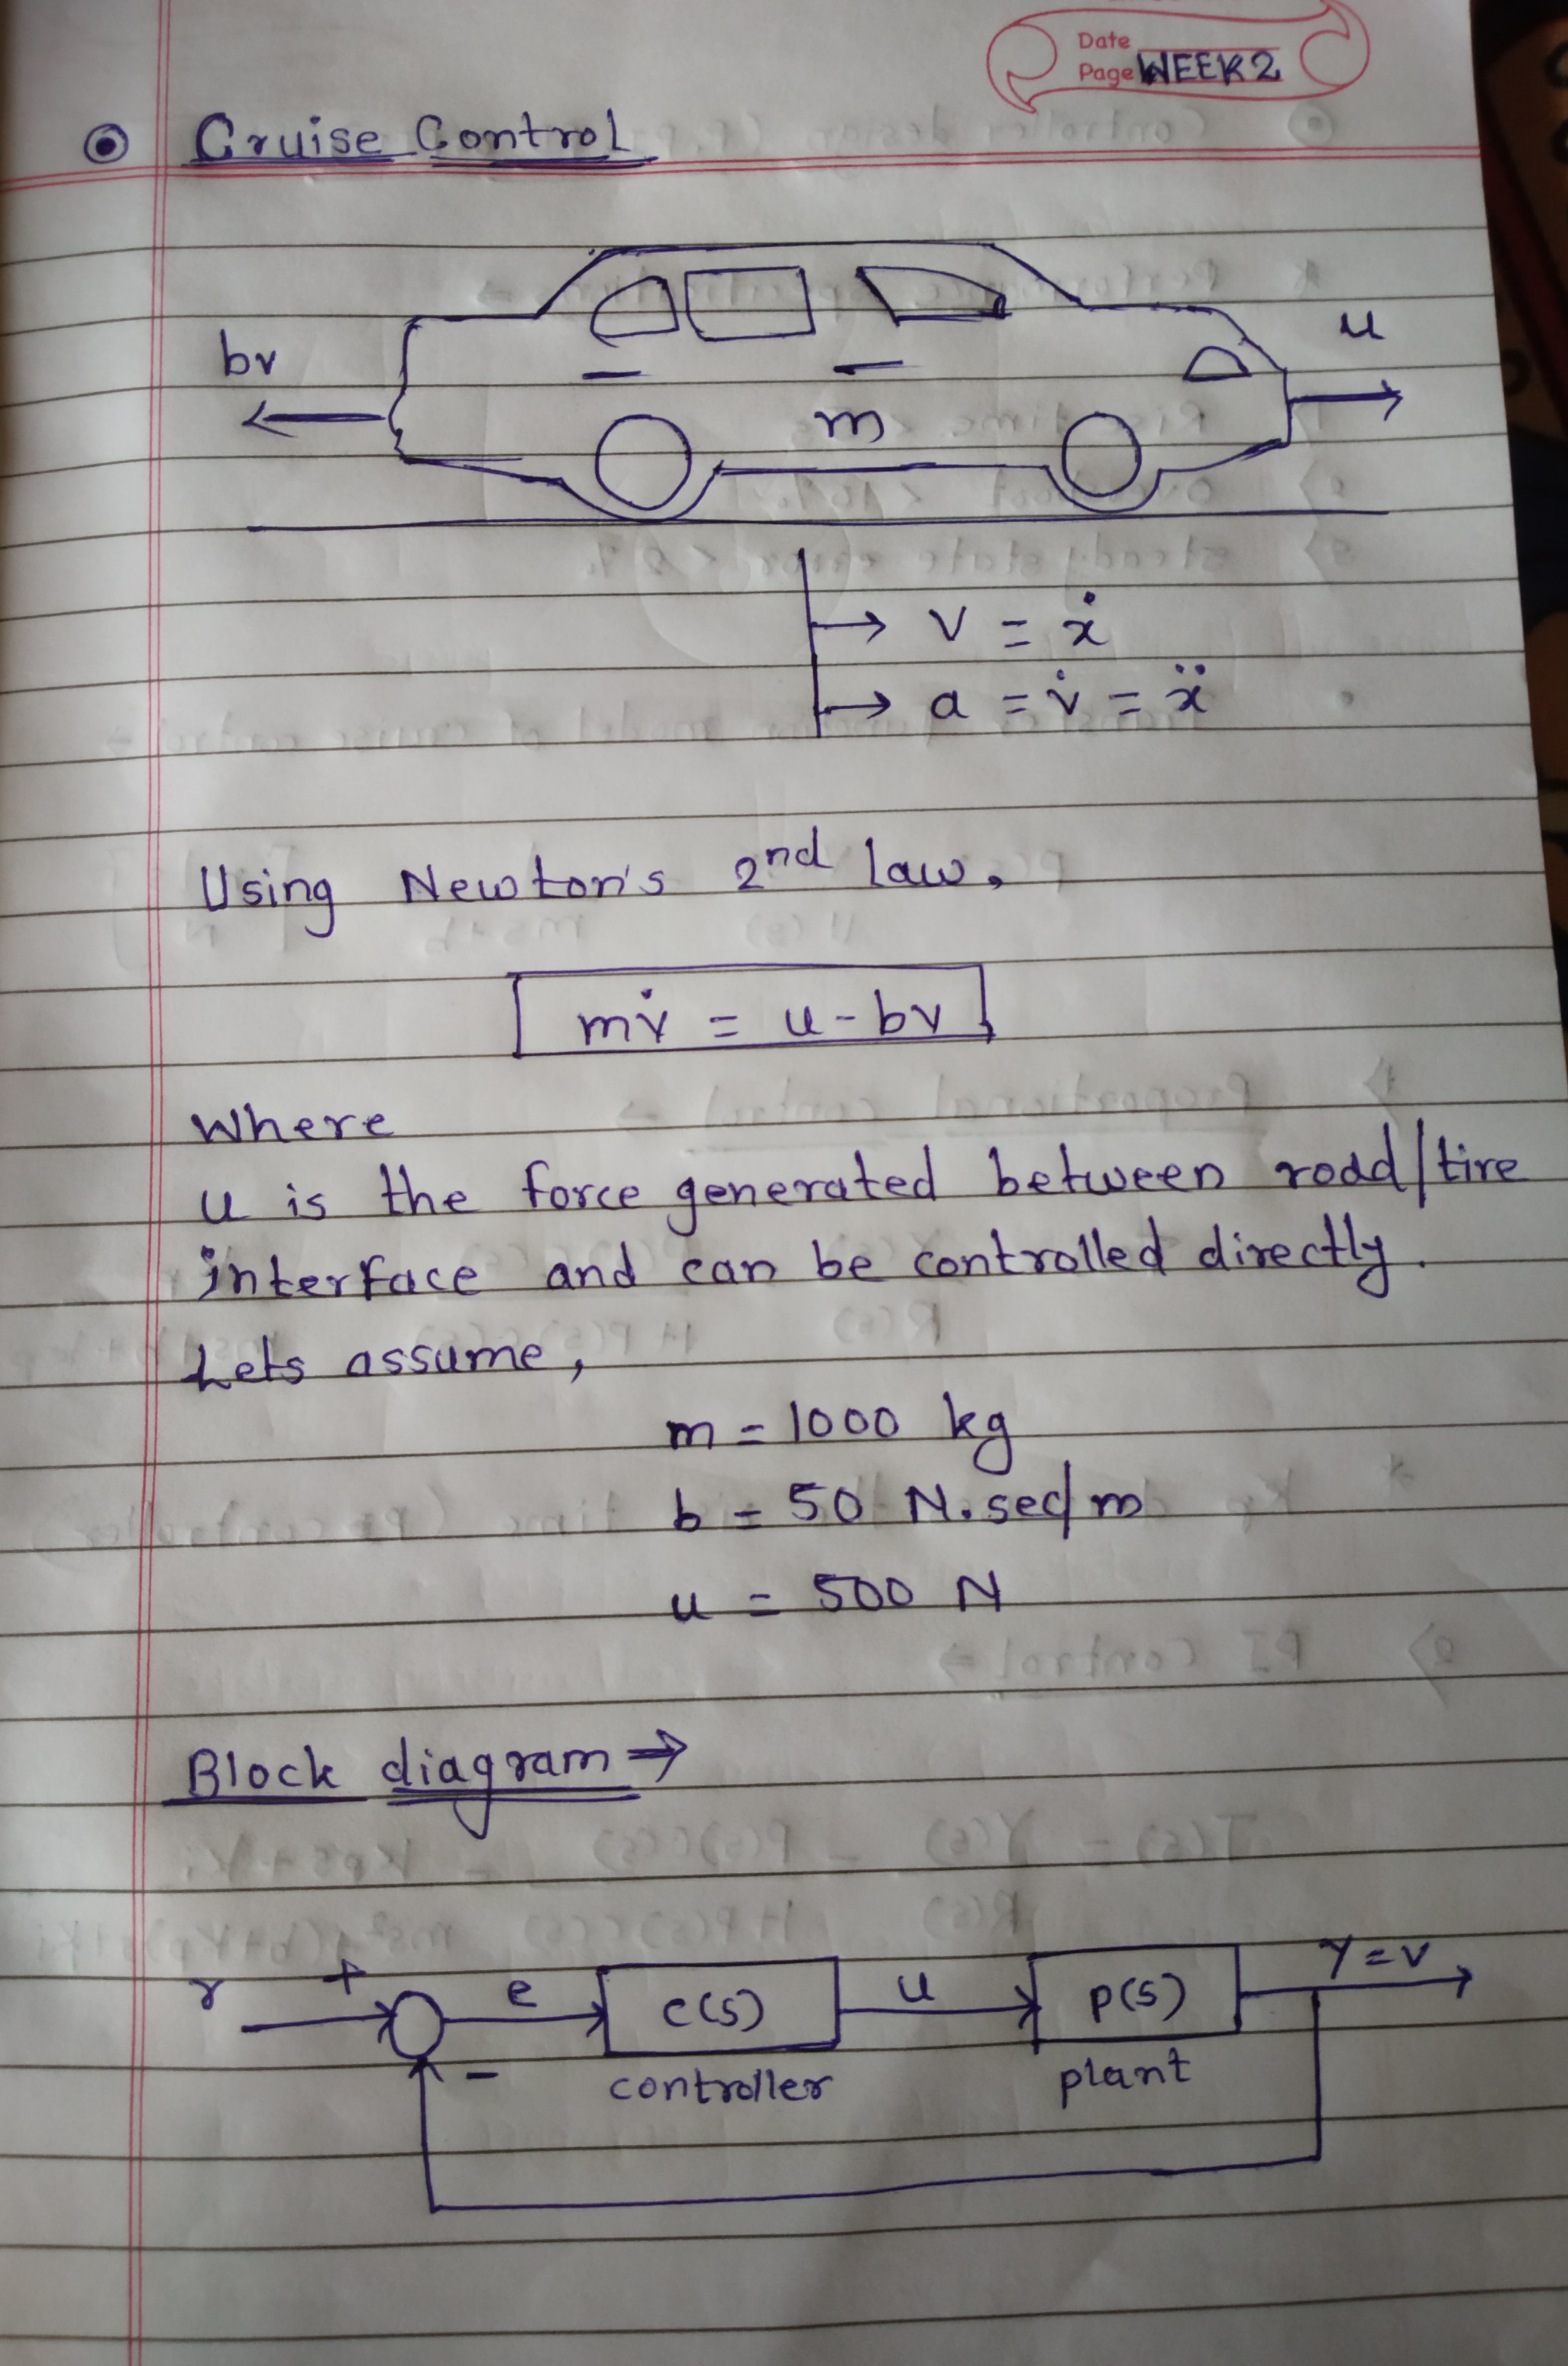 Date
Page WEEK 2
Cruise Control
bv
u
m
v = ẋ
a = v̇ = ẍ
Using Newton's 2nd law,
mv̇ = u - bv
Where
u is the force generated between road/tire
interface and can be controlled directly.
Lets assume,
m = 1000 kg
b = 50 N.sec/m
u = 500 N
Block diagram →
r + e C(S) u P(S) Y = v
-
controller plant